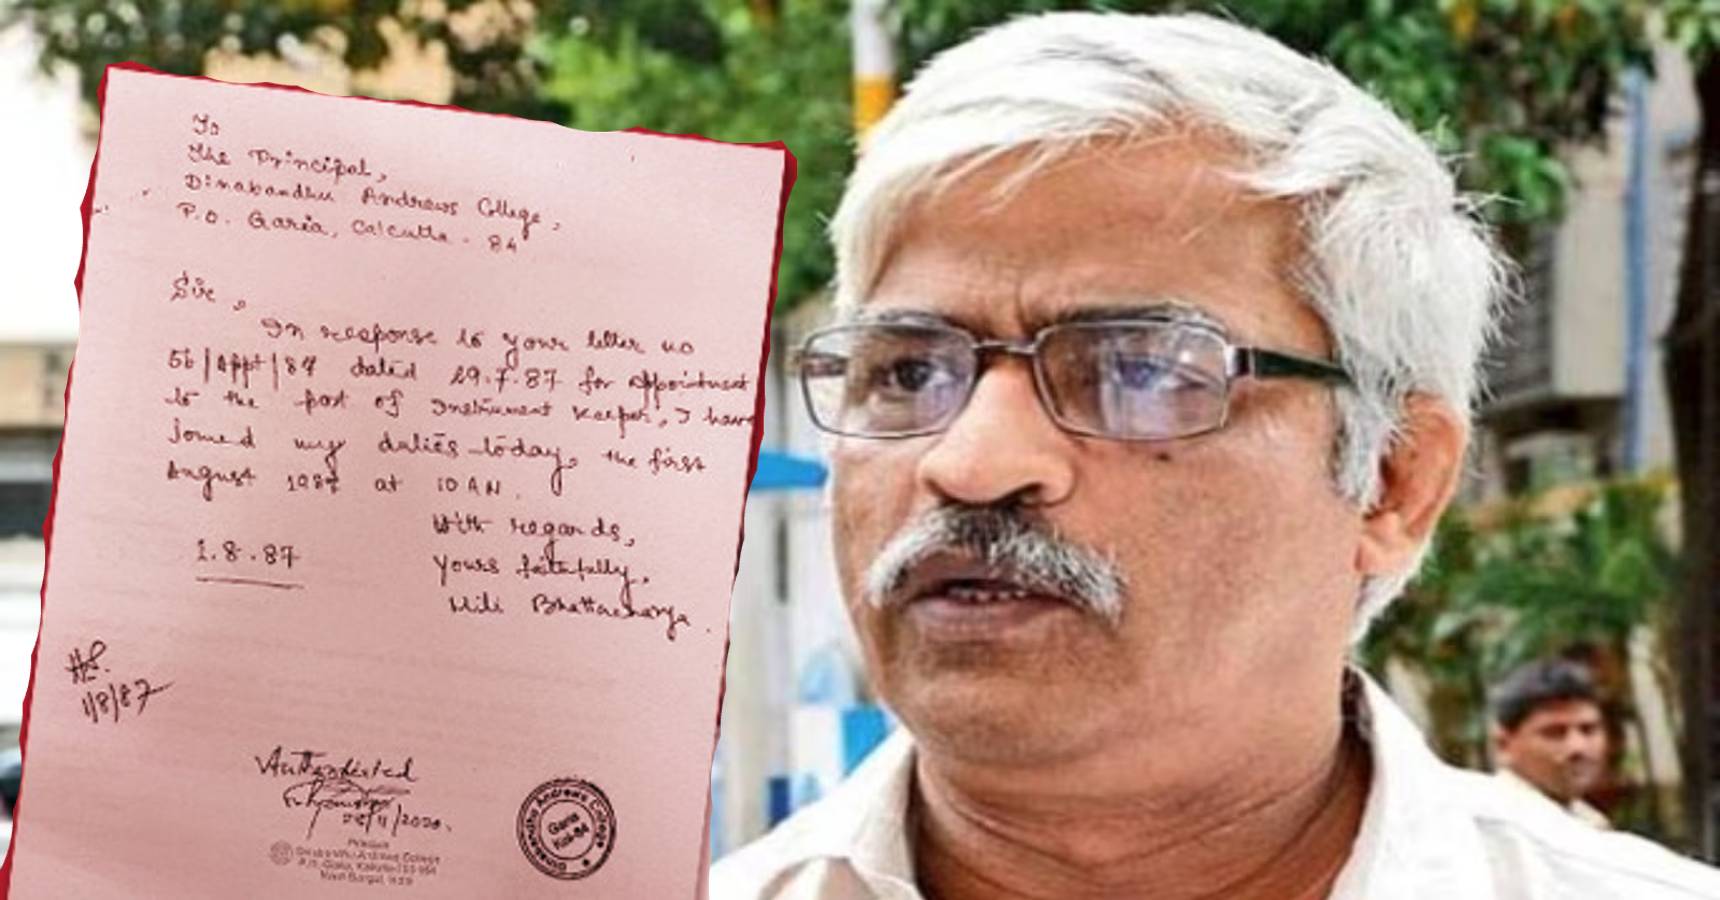 To
The Principal,
Dinabandhu Andrews College,
P.O. Garia, Calcutta - 84
Sir,
In response to your letter no
56/Appt/87 dated 29.7.87 for appointment
to the post of Instrument Keeper, I have
joined my duties today, the first
August 1987 at 10 AM.
With regards,
Yours faithfully,
1.8.87
Mili Bhattacharya.
1/8/87
Authenticated
/11/2020.
Principal
Dinabandhu Andrews College
P.O. Garia, Kolkata-700 084
West Bengal,
Dinabandhu Andrews College
Garia
Kol-84